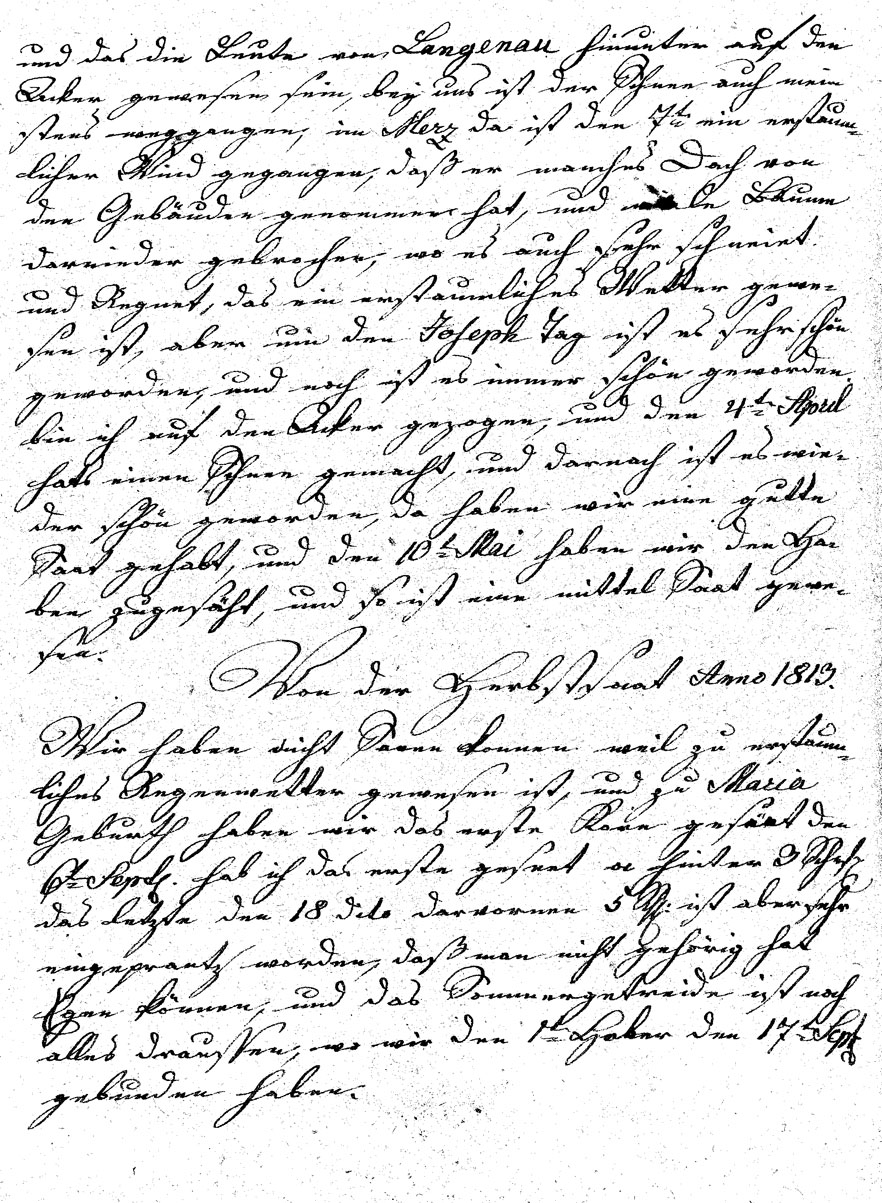 und das die Leute von Langenau hinunter auf den
Acker gewesen sein, bey uns ist der Schnee auch mein
stens weggangen, im Merz da ist den 7t ein erstaun-
licher Wind gegangen, daß er manches Dach von
den Gebäuden genommen hat, und viele Bäume
darnieder gebrochen, wo es auch sehr schneiet
und Regnet, das ein erstaunliches Wetter gewe-
sen ist, aber um den Joseph Tag ist es sehr schön
geworden, und noch ist es immer schön geworden
bin ich auf den Acker gezogen, und den 4t April
hats einen Schnee gemacht, und darnach ist es wie-
der schön geworden, da haben wir eine gutte
Saat gehabt, und den 10t Mai haben wir den Ha-
ber zugesäht, und so ist eine mittel Saat gewe-
sen.
Von der Herbstsaat Anno 1813.
Wir haben nicht Säen konnen weil zu erstaun-
liches Regenwetter gewesen ist, und zu Maria
Geburth haben wir das erste Korn gesäet den
6t Sept. hab ich das erste geseet hinter 3
das letzte den 18 dito darvornen 5 ist aber sehr
eingeprantz worden, daß man nicht gehörig hat
Egen können, und das Sommergetreide ist noch
alles draussen, wo wir den 1t Haber den 17t Sept
gebunden haben.